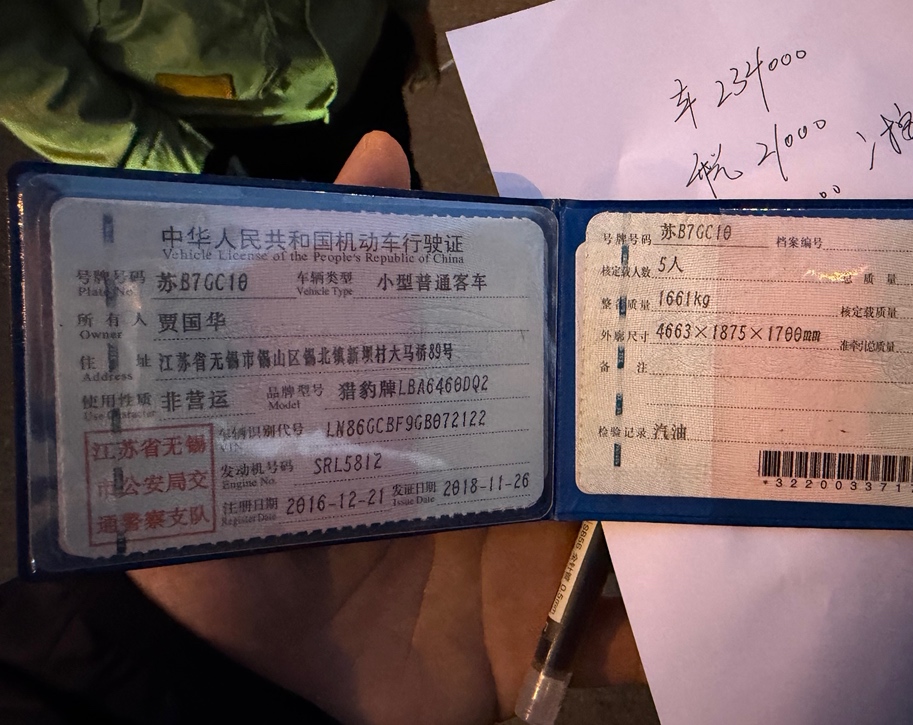 车 234000
税 21000
中华人民共和国机动车行驶证
Vehicle License of the People's Republic of China
号牌号码 苏B7GC10 车辆类型 小型普通客车
Plate No. Vehicle Type
所有人 贾国华
Owner
住址 江苏省无锡市锡山区锡北镇新坝村大马桥89号
Address
使用性质 非营运 品牌型号 猎豹牌LBA6460DQ2
Use Character Model
车辆识别代号 LN86GCBF9GB072122
VIN
发动机号码 SRL5812
Engine No.
注册日期 2016-12-21 发证日期 2018-11-26
Register Date Issue Date
江苏省无锡
市公安局交
通警察支队
号牌号码 苏B7GC10 档案编号
核定载人数 5人 总质量
整备质量 1661kg 核定载质量
外廓尺寸 4663×1875×1700mm 准牵引总质量
备注
检验记录 汽油
*3220003371
0.5mm